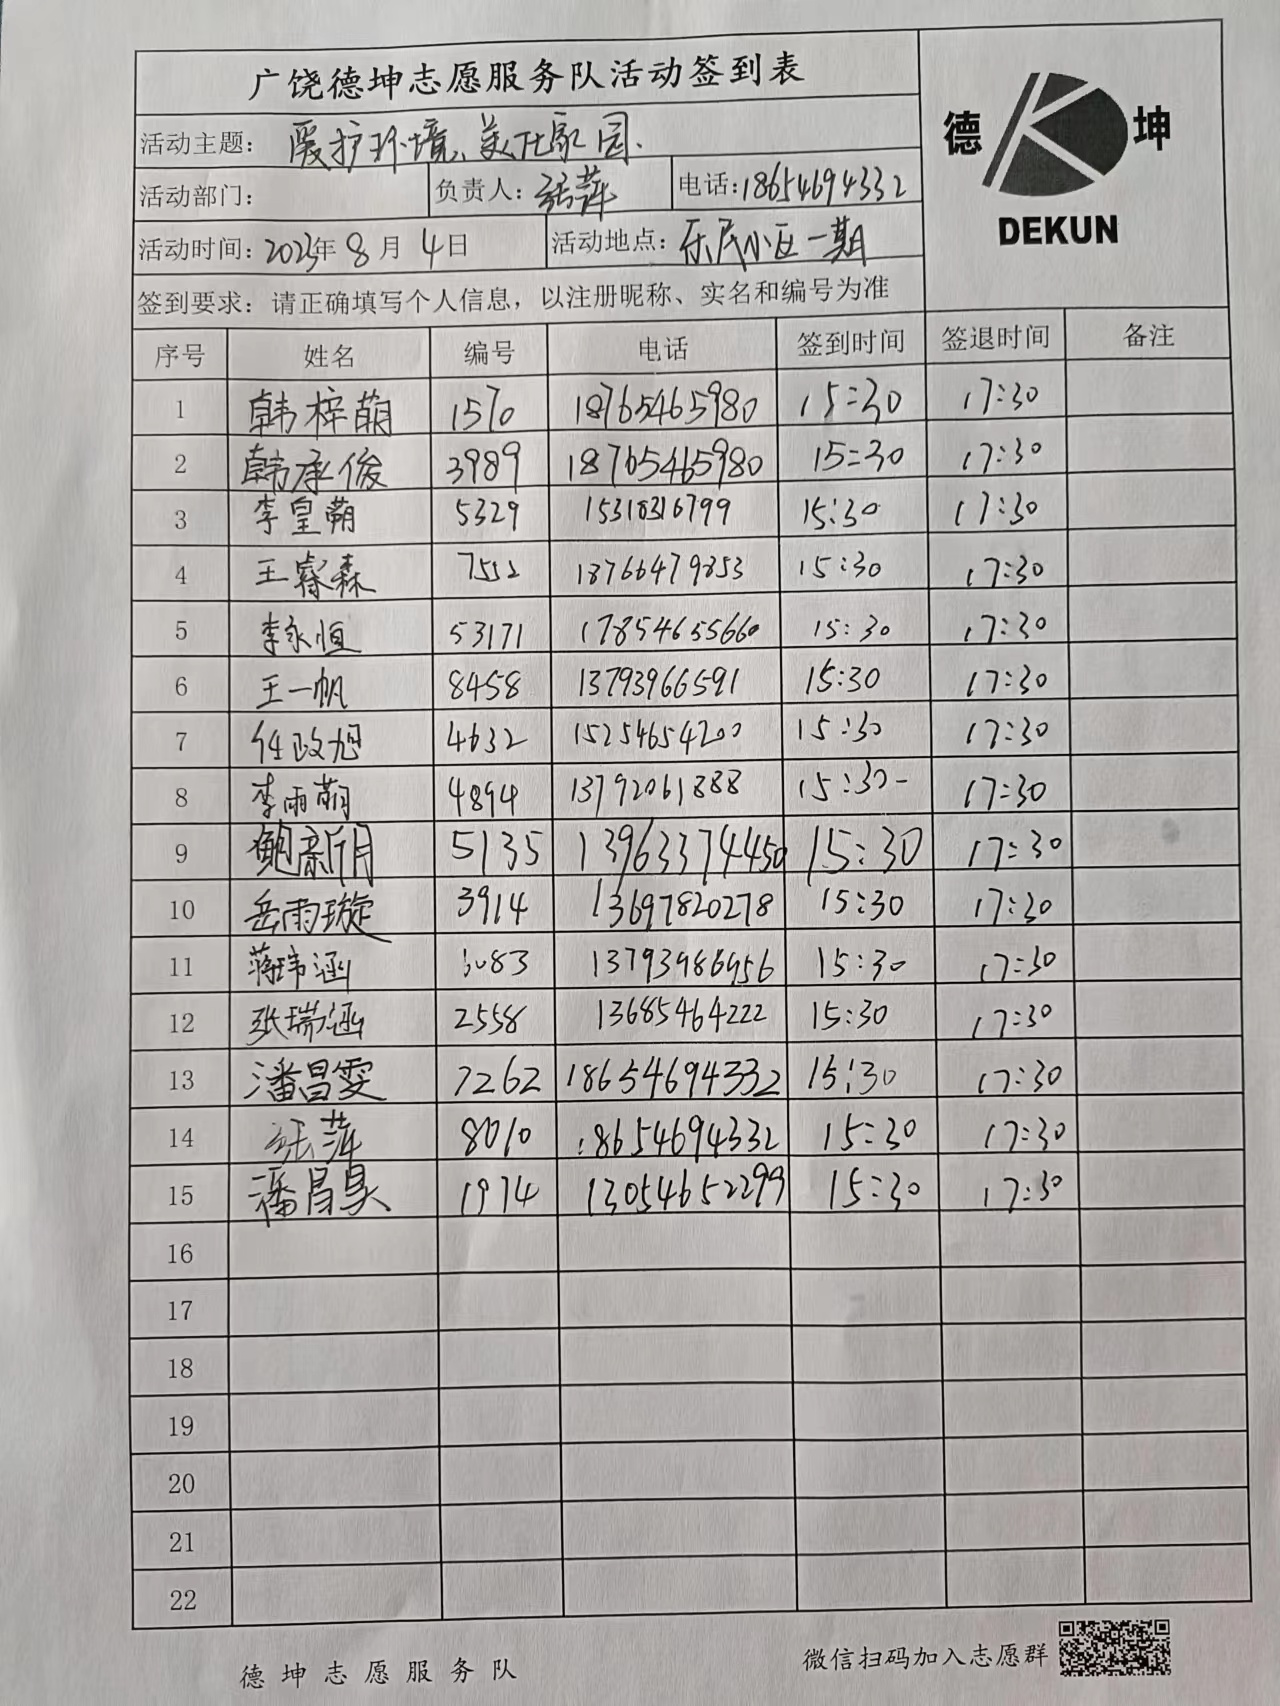 广饶德坤志愿服务队活动签到表
德 坤
DEKUN
活动主题： 爱护环境、美化家园.
活动部门： 负责人：张萍 电话：18654694332
活动时间：2023年8月4日 活动地点：乐民小区一期
签到要求：请正确填写个人信息，以注册昵称、实名和编号为准
序号 姓名 编号 电话 签到时间 签退时间 备注
1 韩梓萌 1570 18765465980 15:30 17:30
2 韩承俊 3989 18765465980 15:30 17:30
3 李皇萌 5329 15318316799 15:30 17:30
4 王睿森 7552 18766479853 15:30 17:30
5 李永恒 53171 17854655660 15:30 17:30
6 王一帆 8458 13793966591 15:30 17:30
7 任政旭 4632 15254654200 15:30 17:30
8 李雨萌 4894 13792061888 15:30 17:30
9 鲍新月 5135 13963374450 15:30 17:30
10 岳雨璇 3914 13697820278 15:30 17:30
11 蒋玮涵 13793986956 15:30 17:30
12 张瑞涵 2558 13685464222 15:30 17:30
13 潘昌雯 7262 18654694332 15:30 17:30
14 张萍 8010 18654694332 15:30 17:30
15 潘昌昊 1974 13054652299 15:30 17:30
16
17
18
19
20
21
22
德坤志愿服务队 微信扫码加入志愿群